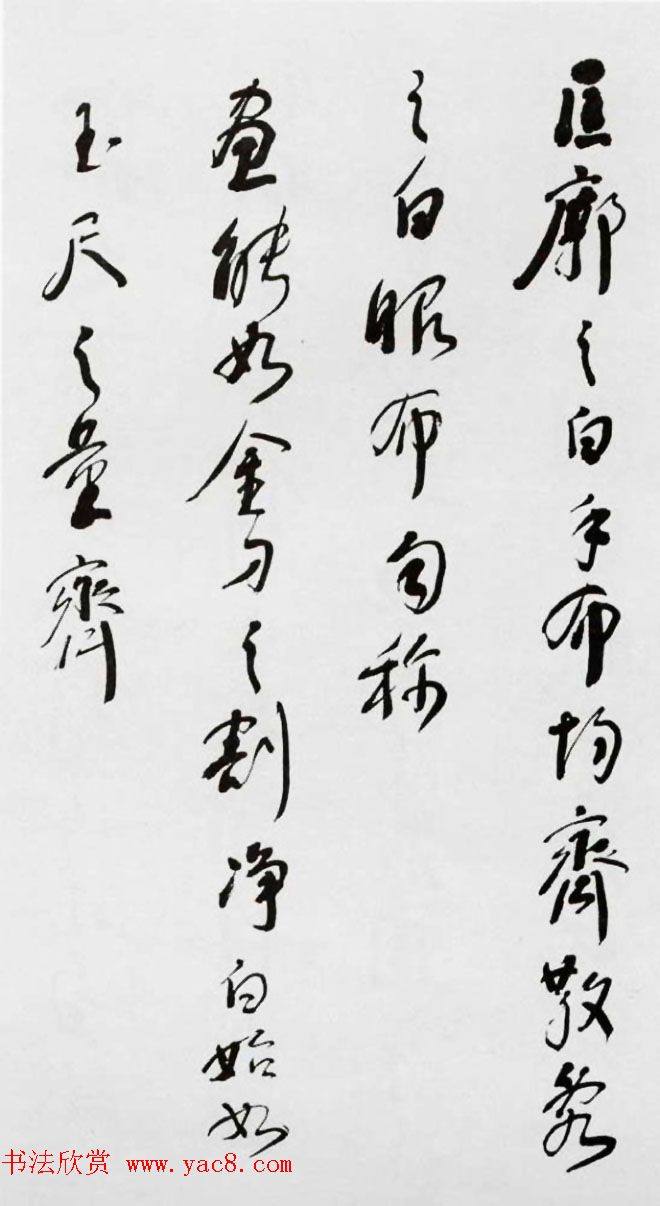 匡廓之白手布均齊散亂
之白眼布勻稱
畫能如金刀之割淨白始如
玉尺之量齊
书法欣赏 www.yac8.com